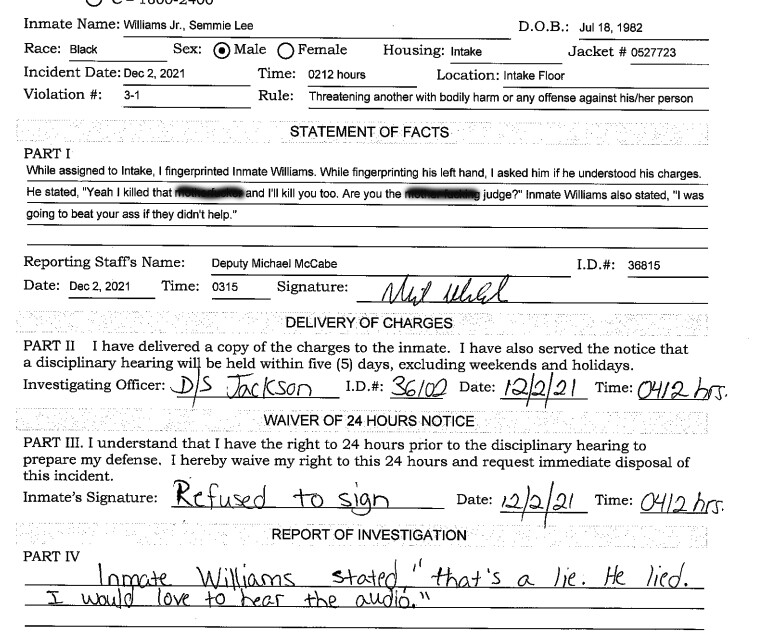 C – 1600-2400
Inmate Name: Williams Jr., Semmie Lee D.O.B.: Jul 18, 1982
Race: Black Sex: Male Female Housing: Intake Jacket # 0527723
Incident Date: Dec 2, 2021 Time: 0212 hours Location: Intake Floor
Violation #: 3-1 Rule: Threatening another with bodily harm or any offense against his/her person
STATEMENT OF FACTS
PART I
While assigned to Intake, I fingerprinted Inmate Williams. While fingerprinting his left hand, I asked him if he understood his charges.
He stated, "Yeah I killed that and I'll kill you too. Are you the judge?" Inmate Williams also stated, "I was
going to beat your ass if they didn't help."
Reporting Staff's Name: Deputy Michael McCabe I.D.#: 36815
Date: Dec 2, 2021 Time: 0315 Signature:
DELIVERY OF CHARGES
PART II I have delivered a copy of the charges to the inmate. I have also served the notice that
a disciplinary hearing will be held within five (5) days, excluding weekends and holidays.
Investigating Officer: D/S Jackson I.D.#: 36102 Date: 12/2/21 Time: 0412 hrs.
WAIVER OF 24 HOURS NOTICE
PART III. I understand that I have the right to 24 hours prior to the disciplinary hearing to
prepare my defense. I hereby waive my right to this 24 hours and request immediate disposal of
this incident.
Inmate's Signature: Refused to sign Date: 12/2/21 Time: 0412 hrs.
REPORT OF INVESTIGATION
PART IV
Inmate Williams stated "that's a lie. He lied.
I would love to hear the audio."